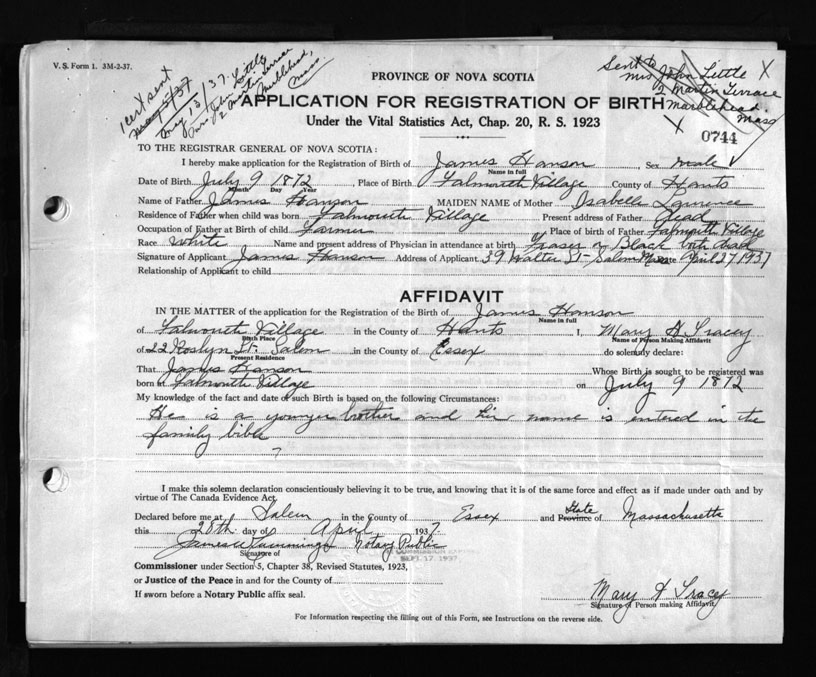 V. S. Form 1. 3M-2-37.
1 cert sent
May 15/37
Aug 13/37.
Mrs John Little
2 Martin Terrace
Marblehead,
Mass.
Sent to
Mrs John Little X
2 Martin Terrace
Marblehead.
Mass
X
PROVINCE OF NOVA SCOTIA
APPLICATION FOR REGISTRATION OF BIRTH
Under the Vital Statistics Act, Chap. 20, R. S. 1923
0744
TO THE REGISTRAR GENERAL OF NOVA SCOTIA:
I hereby make application for the Registration of Birth of James Hanson, Sex male
Name in full
Date of Birth July 9 1872, Place of Birth Falmouth Village County of Hants
Month Day Year
Name of Father James Hanson MAIDEN NAME of Mother Isabelle Lawrence
Residence of Father when child was born Falmouth Village Present address of Father dead
Occupation of Father at Birth of child Farmer Place of birth of Father Falmouth Village
Race White Name and present address of Physician in attendance at birth Fraser or Black both dead
Signature of Applicant James Hanson Address of Applicant 39 Walter St- Salem Mass Date April 27 1937
Relationship of Applicant to child
AFFIDAVIT
IN THE MATTER of the application for the Registration of the Birth of James Hanson
Name in full
of Falmouth Village in the County of Hants I, Mary H Tracey
Birth Place Name of Person Making Affidavit
of 22 Roslyn St. Salem in the County of Essex do solemnly declare:
Present Residence
That James Hanson Whose Birth is sought to be registered was
born at Falmouth Village on July 9 1872
My knowledge of the fact and date of such Birth is based on the following Circumstances:
He is a younger brother and his name is entered in the
family bible
I make this solemn declaration conscientiously believing it to be true, and knowing that it is of the same force and effect as if made under oath and by
virtue of The Canada Evidence Act.
Declared before me at Salem in the County of Essex and State Province of Massachusetts
this 28th day of April 1937.
James W Cummings Notary Public
Signature of
COMMISSION EXPIRES
SEPT. 17. 1937
Commissioner under Section 5, Chapter 38, Revised Statutes, 1923,
or Justice of the Peace in and for the County of
If sworn before a Notary Public affix seal.
Mary H Tracey
Signature of Person making Affidavit
For Information respecting the filling out of this Form, see Instructions on the reverse side.